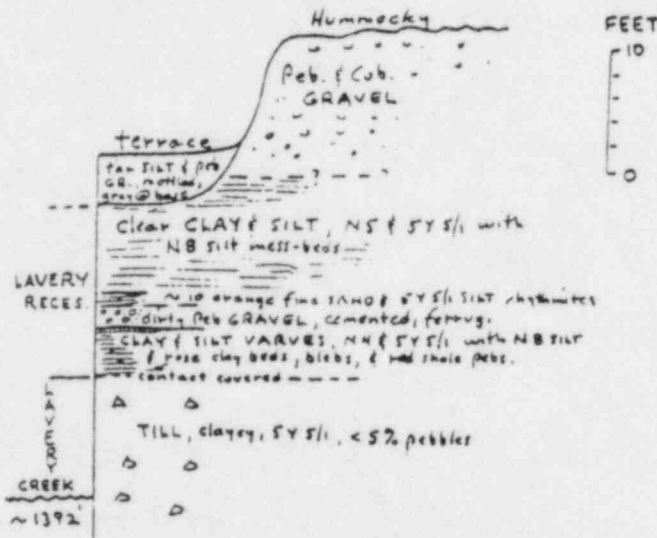 Hummocky
FEET
10
Peb. & Cob.
GRAVEL
0
terrace
tan SILT & peb
GR., mottled,
gray @ base
Clear CLAY & SILT, N5 & 5Y 5/1 with
N8 silt
LAVERY
RECES.
~ 10 orange fine SAND & 5Y 5/1 SILT rhythmites
dirty Peb GRAVEL, cemented, ferrug.
CLAY & SILT VARVES, N4 & 5Y 5/1 with N8 SILT
& rose clay beds, blebs, & red shale pebs.
contact covered
LAVERY
TILL, clayey, 5Y 5/1, < 5% pebbles
CREEK
~1392'